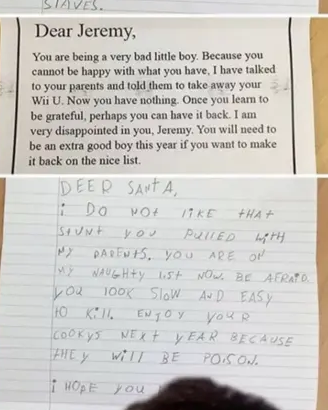 SLAVES.
Dear Jeremy,
You are being a very bad little boy. Because you
cannot be happy with what you have, I have talked
to your parents and told them to take away your
Wii U. Now you have nothing. Once you learn to
be grateful, perhaps you can have it back. I am
very disappointed in you, Jeremy. You will need to
be an extra good boy this year if you want to make
it back on the nice list.
DEER SANTA,
i DO NOT liKE tHAt
StUNt YOU PULLED WitH
MY PARENtS. YOU ARE ON
MY NAUGHtY liSt NOW. BE AFRAiD.
YOU lOOK SlOW AND EASY
tO Kill. ENJOY YOUR
COOKYS NEXt YEAR BECAUSE
tHEY Will BE POiSON.
i HOPE YOU